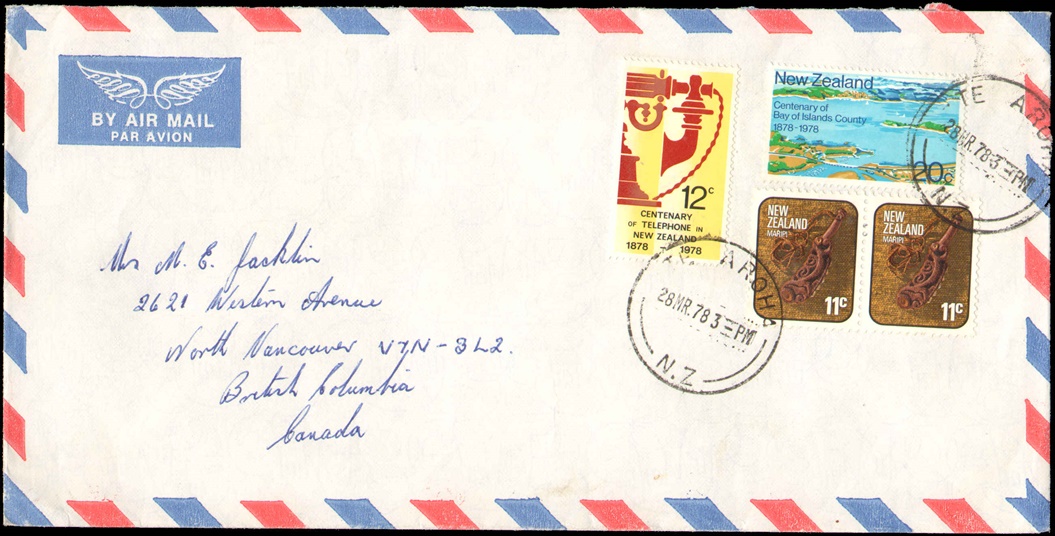 BY AIR MAIL
PAR AVION
12c
CENTENARY
OF TELEPHONE IN
NEW ZEALAND
1878 1978
New Zealand
Centenary of
Bay of Islands County
1878-1978
20c
NEW
ZEALAND
MARIPI
11c
NEW
ZEALAND
MARIPI
11c
TE AROHA
28MR.78 3 PM
N.Z.
TE AROHA
28MR.78 3 PM
N.Z.
Mrs M. E. Jacklin
2621 Western Avenue
North Vancouver V7N-3L2.
British Columbia
Canada